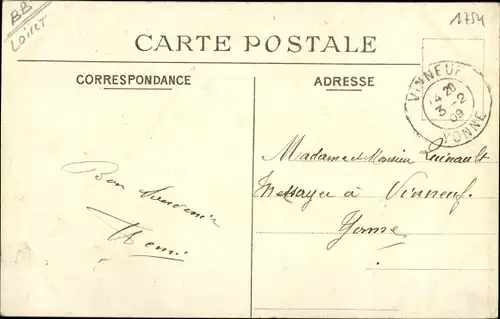 BB
LOIRET
1754
CARTE POSTALE
CORRESPONDANCE
ADRESSE
VINNEUF
14 20
3 - 2
09
YONNE
Bon Souvenir
Henri
Madame et Monsieur Quinault
Messager à Vinneuf
Yonne